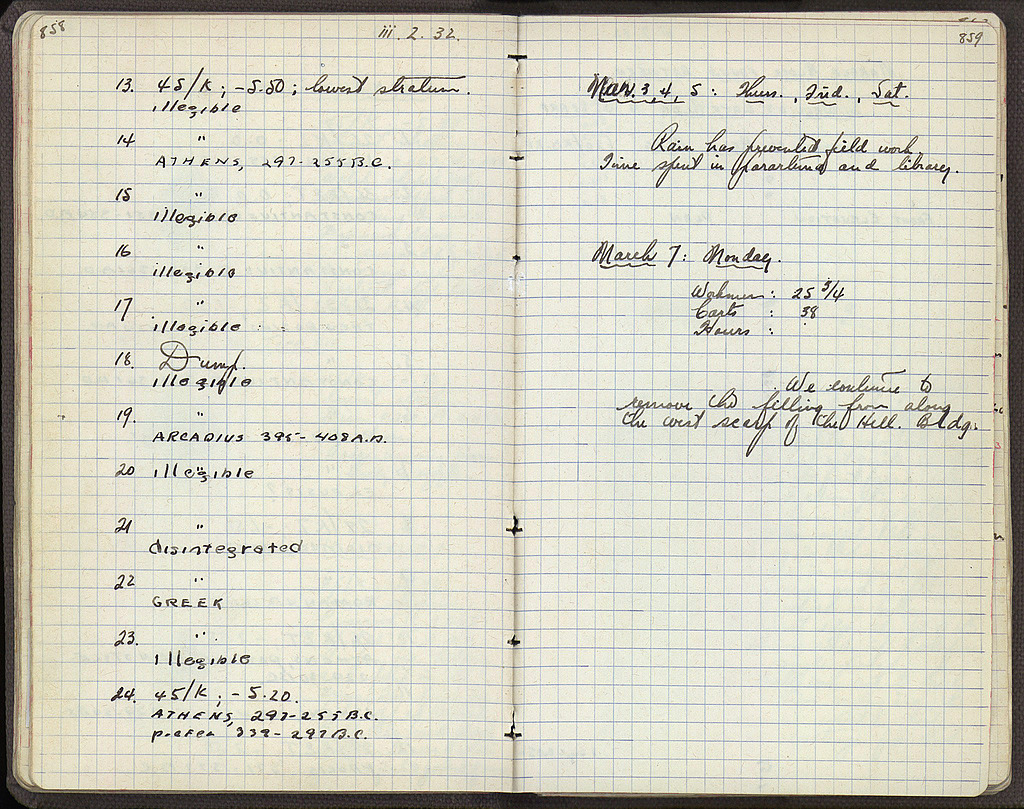 858
iii. 2. 32.
13. 45/K ; -5.50 ; lowest stratum.
illegible
14 "
ATHENS, 297-255 B.C.
15 "
illegible
16 "
illegible
17 "
illegible
18. Dump.
illegible
19. "
ARCADIUS 395-408 A.D.
20 "
illegible
21 "
disintegrated
22 "
GREEK
23. "
illegible
24. 45/K ; -5.20.
ATHENS, 297-255 B.C.
prefer 339-297 B.C.
859
Mar. 3, 4, 5 : Thurs., Frid., Sat.
Rain has prevented field work.
Time spent in and library.
March 7: Monday.
Workmen : 25 3/4
Carts : 38
Hours :
We continue to
remove the filling from along
the west scarp of the Hell. Bldg.